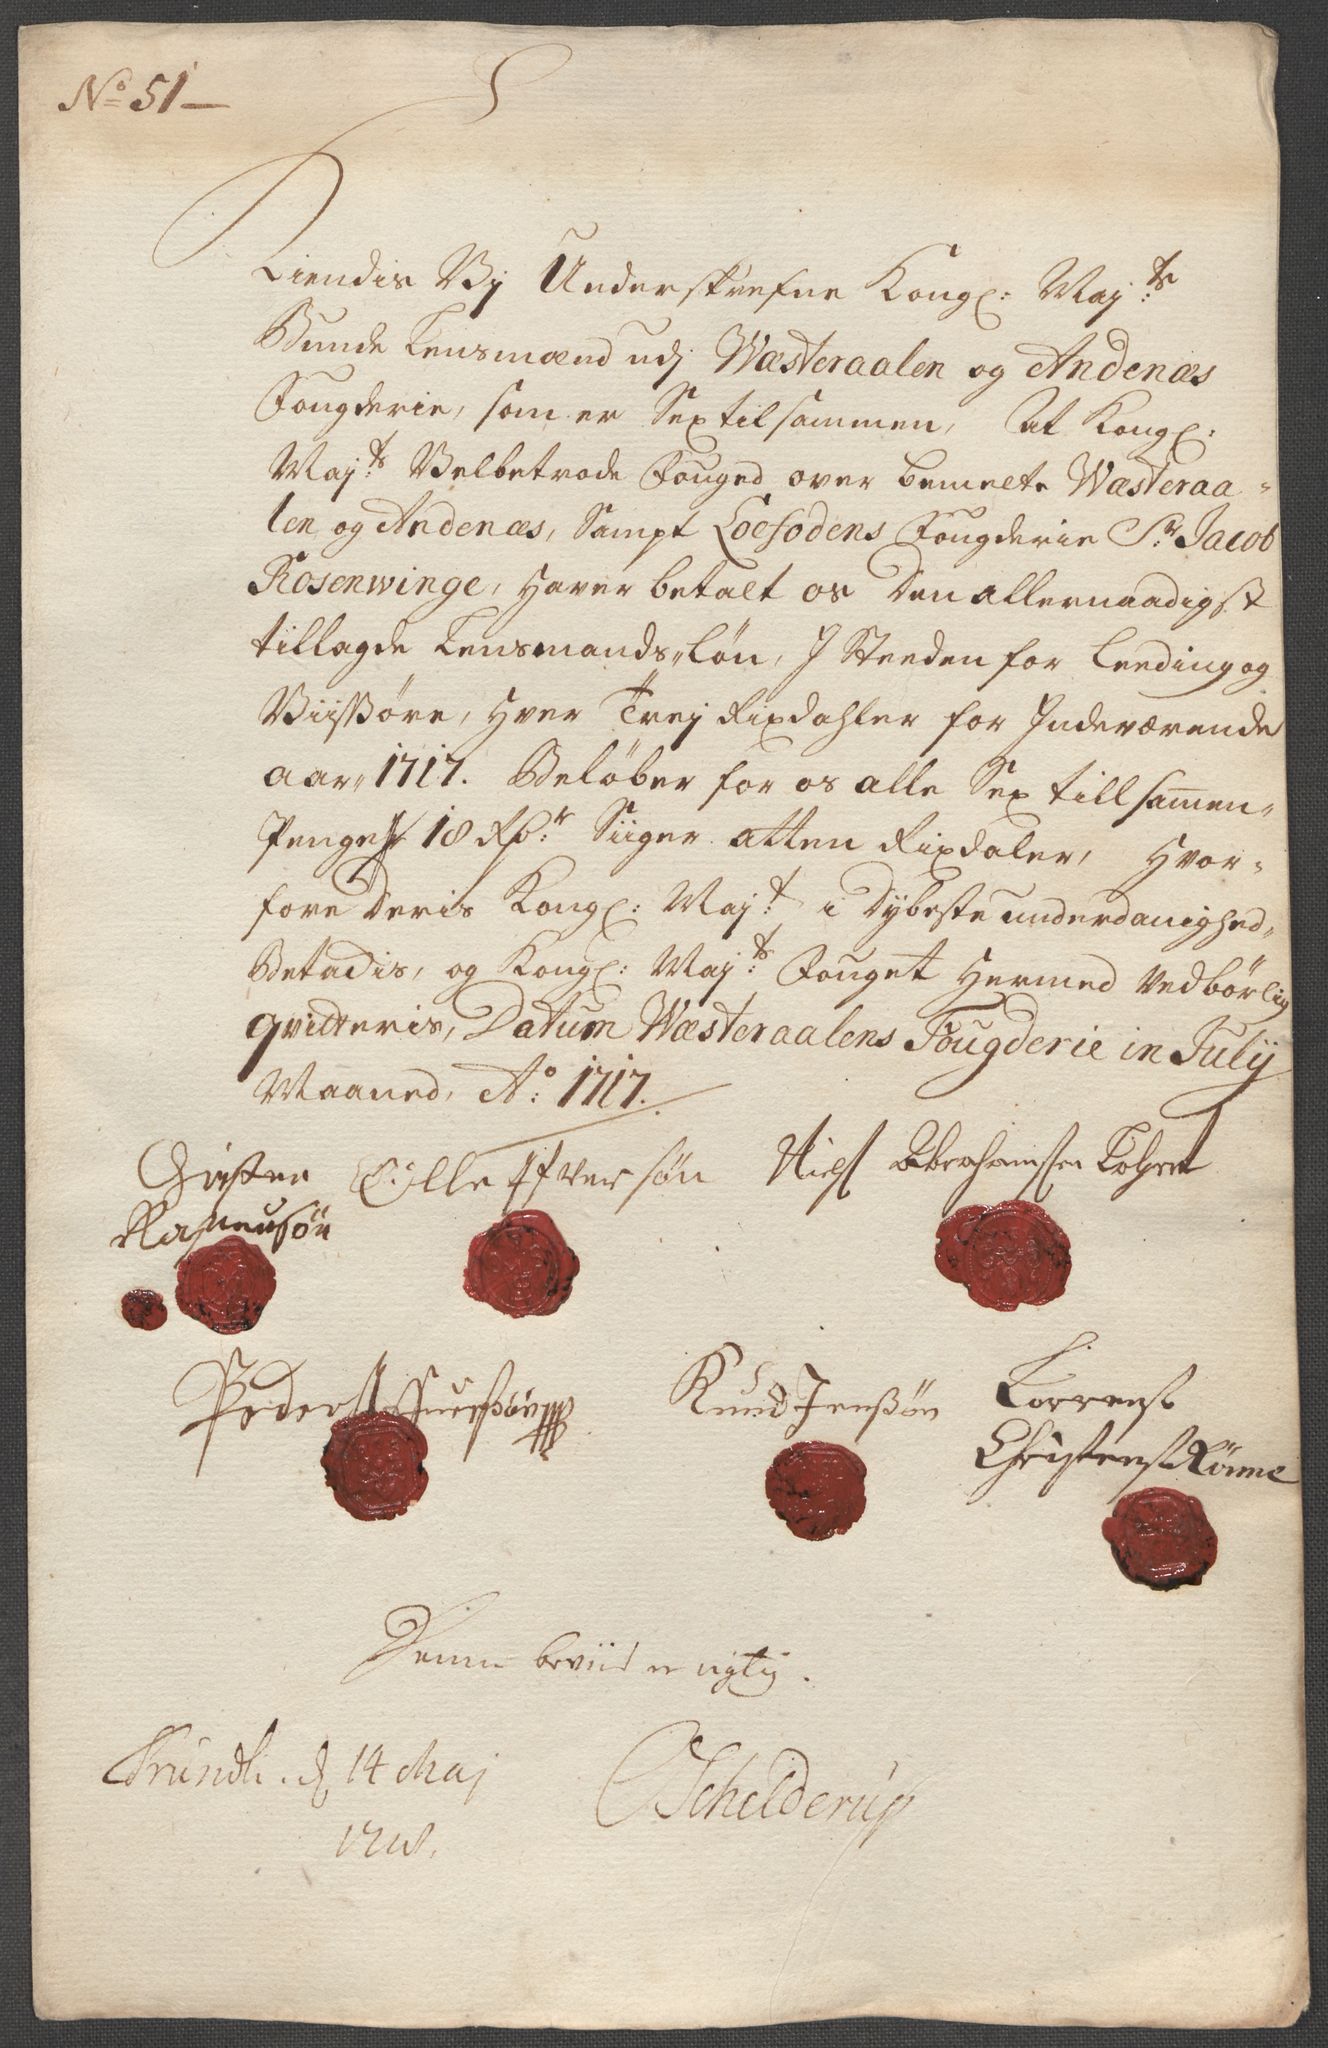 No 51
Kiendis Vij Underskrefne Kongl: Maj:ts
Bunde Lensmænd udj Wæsteraalen og Andenæs
Fougderie, som er Sex tilsammen, At Kongl:
Maj:ts Velbetrode Fouged over bemelte Wæsteraa-
len og Andenæs, Sampt Loefodens Fougderie Sr. Jacob
Rosenwinge, Haver betalt os Den allernaadigst
tillagde Lensmands Løn, J Steeden for Leeding og
Viißøre, Hver Trej Rixdahler for Indeværende
aar 1717. Beløber for os alle Sex till samen,
Penge 18 Rdr. Siiger Atten Rixdaler, Hvor-
fore Deris Kongl: Maj:t i Dybeste underdanighed,
Betackis, og Kongl: Maj:ts Fouget Hermed Vedbørlig
qvitteris, Datum Wæsteraalens Fougderie in Julij
Maaned, Ao: 1717.
Christen Olle Ifversøn Niels Abrahamsen
Rasmusøn
Peder Knud Jenßøn Lorrens
Christens Rönne
Denne beviis er rigtig.
Trundh. d 14 Maj OSchelderup
1718.